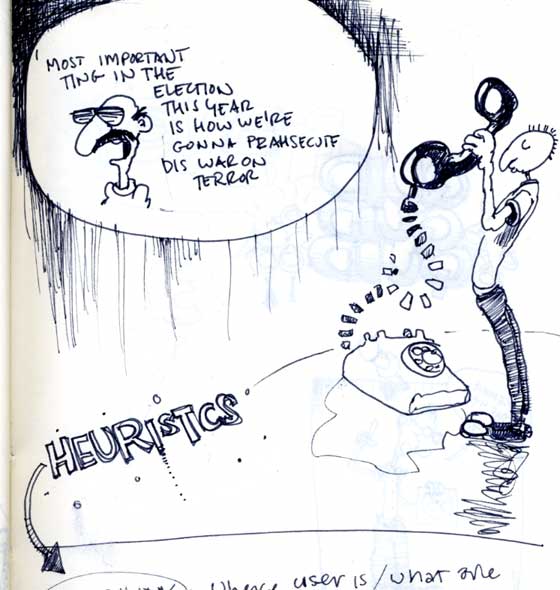 "MOST IMPORTANT
TING IN THE
ELECTION
THIS YEAR
IS HOW WE'RE
GONNA PRAHSECUTE
DIS WAR ON
TERROR
HEURISTCS
user is / what are